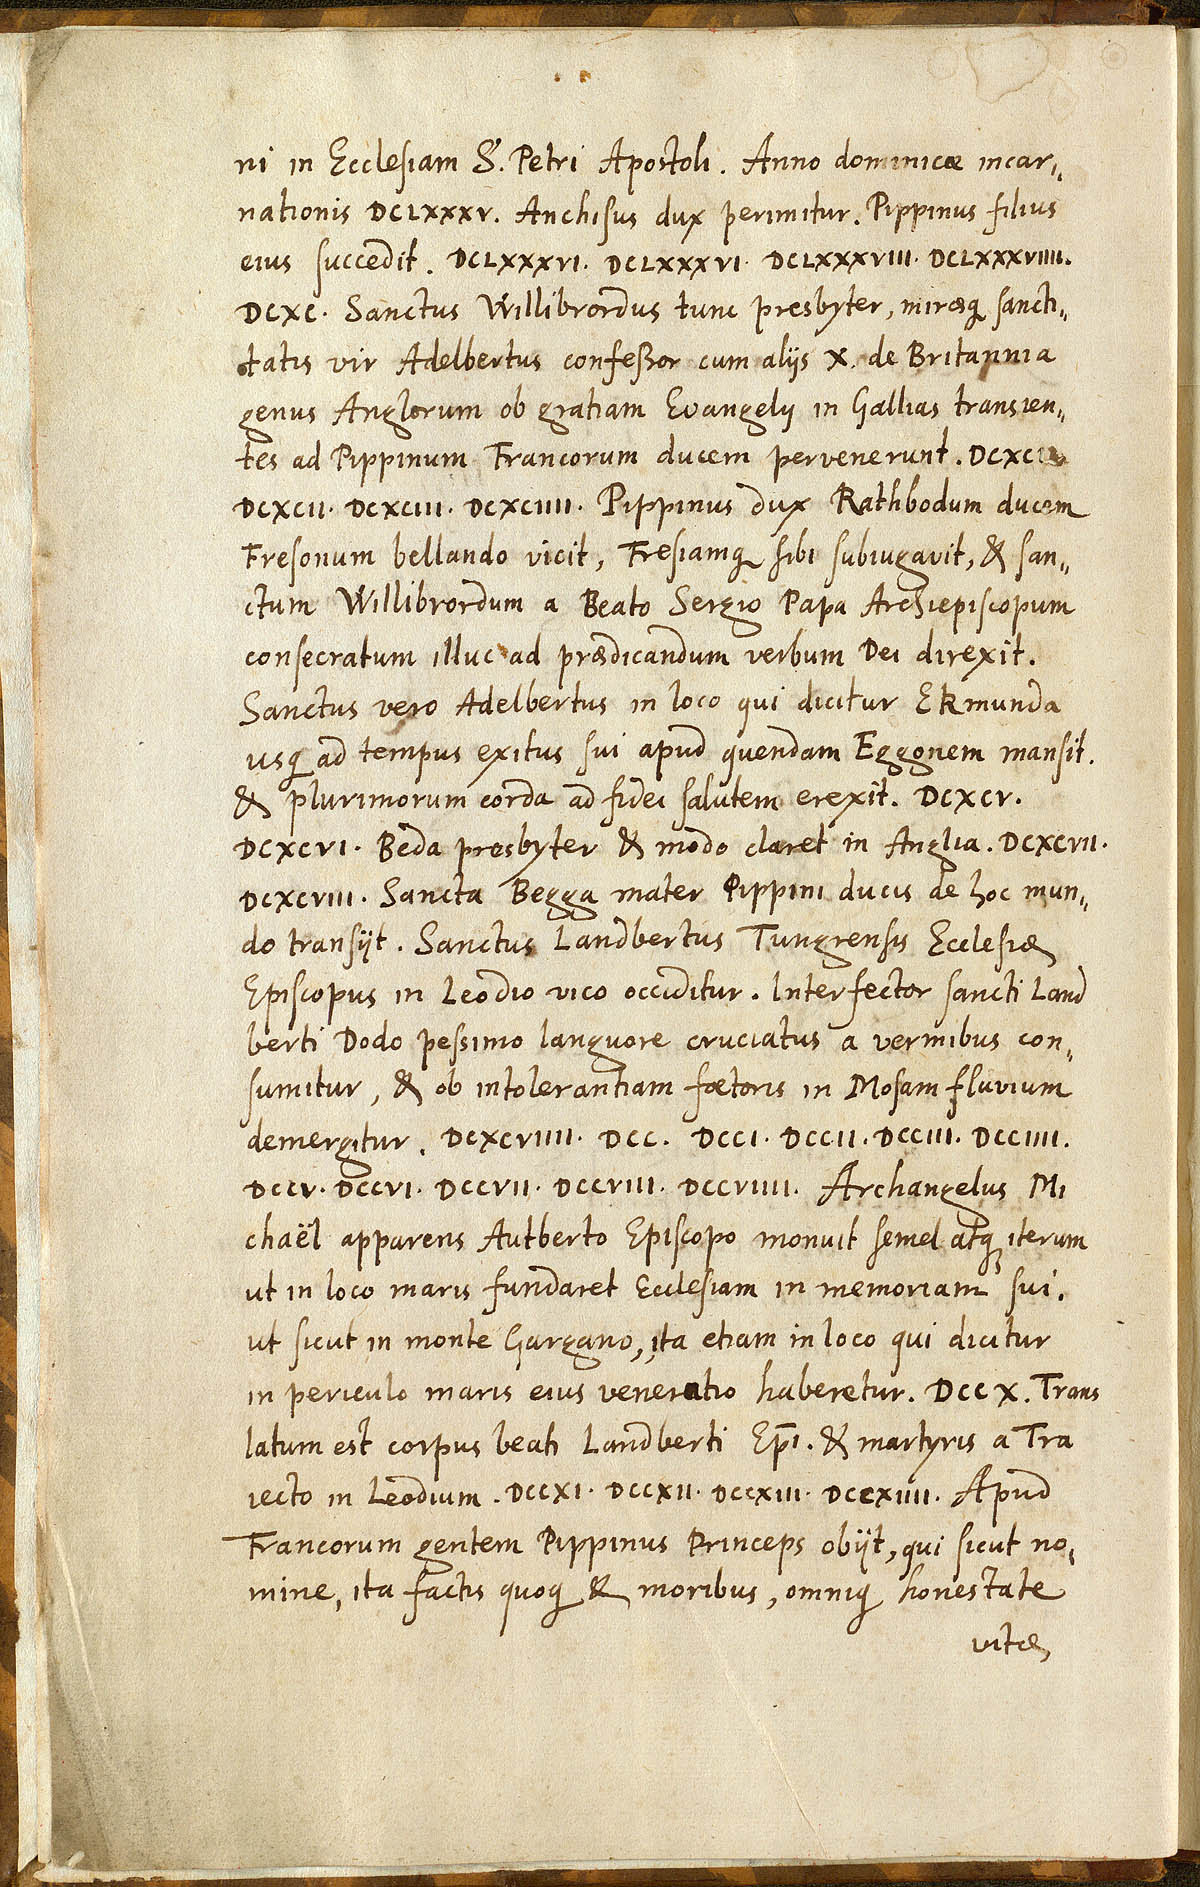 ni in Ecclesiam S. Petri Apostoli. Anno dominicæ incar„
nationis DCLXXXV. Anchisus dux perimitur. Pippinus filius
eius succedit. DCLXXXVI. DCLXXXVI. DCLXXXVIII. DCLXXXVIIII.
DCXC. Sanctus Willibrordus tunc presbyter, miræq sancti„
tatis vir Adelbertus confeßor cum alijs X. de Britannia
genus Anglorum ob gratiam Evangelij in Gallias transien„
tes ad Pippinum Francorum ducem pervenerunt. DCXCI
DCXCII. DCXCIII. DCXCIIII. Pippinus dux Rathbodum ducem
Fresonum bellando vicit, Fresiamq sibi subiugavit, & san„
ctum Willibrordum a Beato Sergio Papa Archiepiscopum
consecratum illuc ad prædicandum verbum Dei direxit.
Sanctus vero Adelbertus in loco qui dicitur Ekmunda
usq ad tempus exitus sui apud quendam Eggonem mansit.
& plurimorum corda ad fidei salutem erexit. DCXCV.
DCXCVI. Beda presbyter & modo claret in Anglia. DCXCVII.
DCXCVIII. Sancta Begga mater Pippini ducis de hoc mun„
do transijt. Sanctus Landbertus Tungrensis Ecclesiæ
Episcopus in Leodio vico occiditur. Interfector sancti Land
berti Dodo pessimo languore cruciatus a vermibus con„
sumitur, & ob intolerantiam fœtoris in Mosam fluvium
demergitur. DCXCVIIII. DCC. DCCI. DCCII. DCCIII. DCCIIII.
DCCV. DCCVI. DCCVII. DCCVIII. DCCVIIII. Archangelus Mi
chaël apparens Autberto Episcopo monuit semel atq iterum
ut in loco maris fundaret Ecclesiam in memoriam sui.
ut sicut in monte Gargano, ita etiam in loco qui dicitur
in periculo maris eius veneratio haberetur. DCCX. Trans
latum est corpus beati Landberti Ep̄i. & martyris a Tra
iecto in Leodium. DCCXI. DCCXII. DCCXIII. DCCXIIII. Apud
Francorum gentem Pippinus Princeps obijt, qui sicut no„
mine, ita factis quoq & moribus, omniq honestate
vitæ